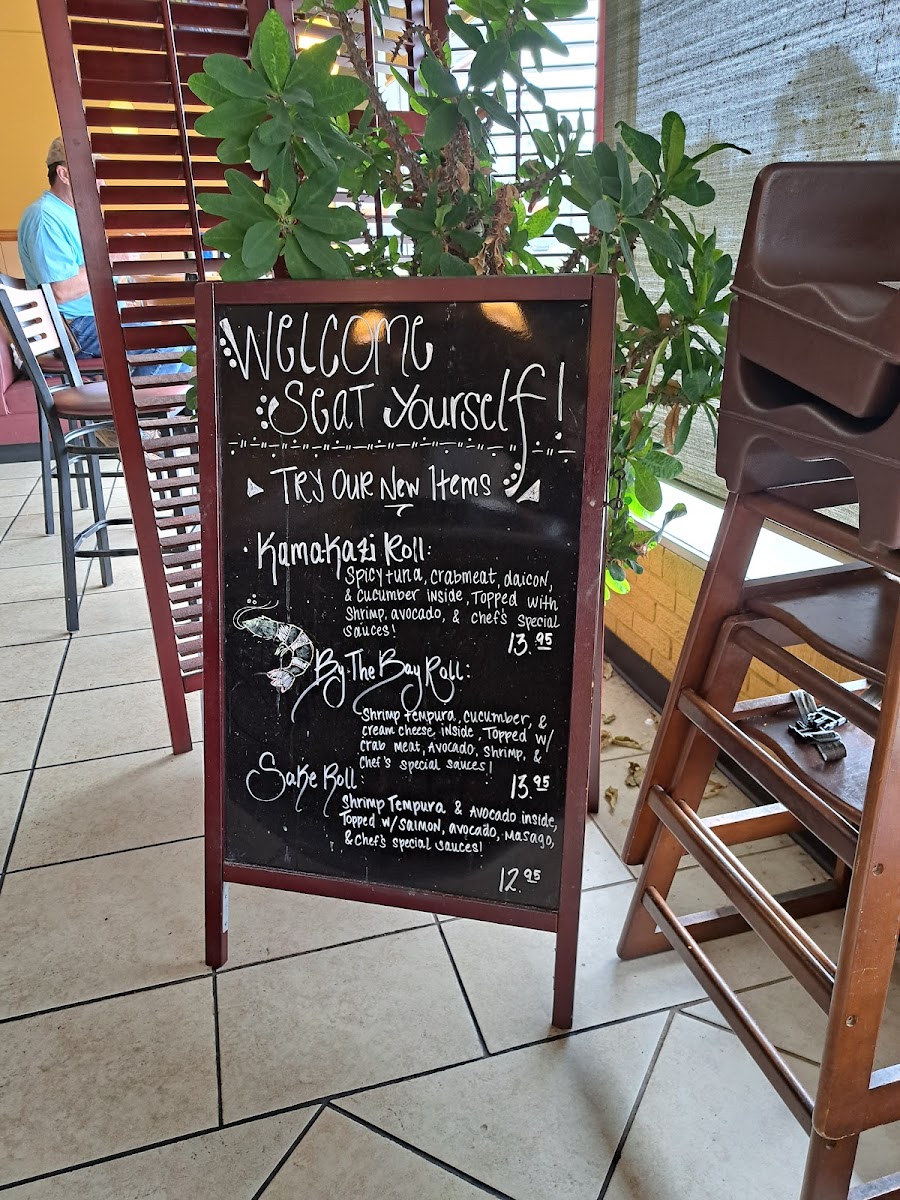 Welcome
Seat Yourself!
Try Our New Items
Kamakazi Roll:
Spicy tuna, crabmeat, daicon,
& cucumber inside, Topped with
Shrimp, avocado, & chef's special
sauces!
13.95
By The Bay Roll:
Shrimp tempura, cucumber, &
cream cheese inside, Topped w/
crab meat, Avocado, Shrimp, &
Chef's special sauces!
13.95
Sake Roll
Shrimp Tempura & Avocado inside,
Topped w/ salmon, avocado, Masago,
& Chef's special sauces!
12.95